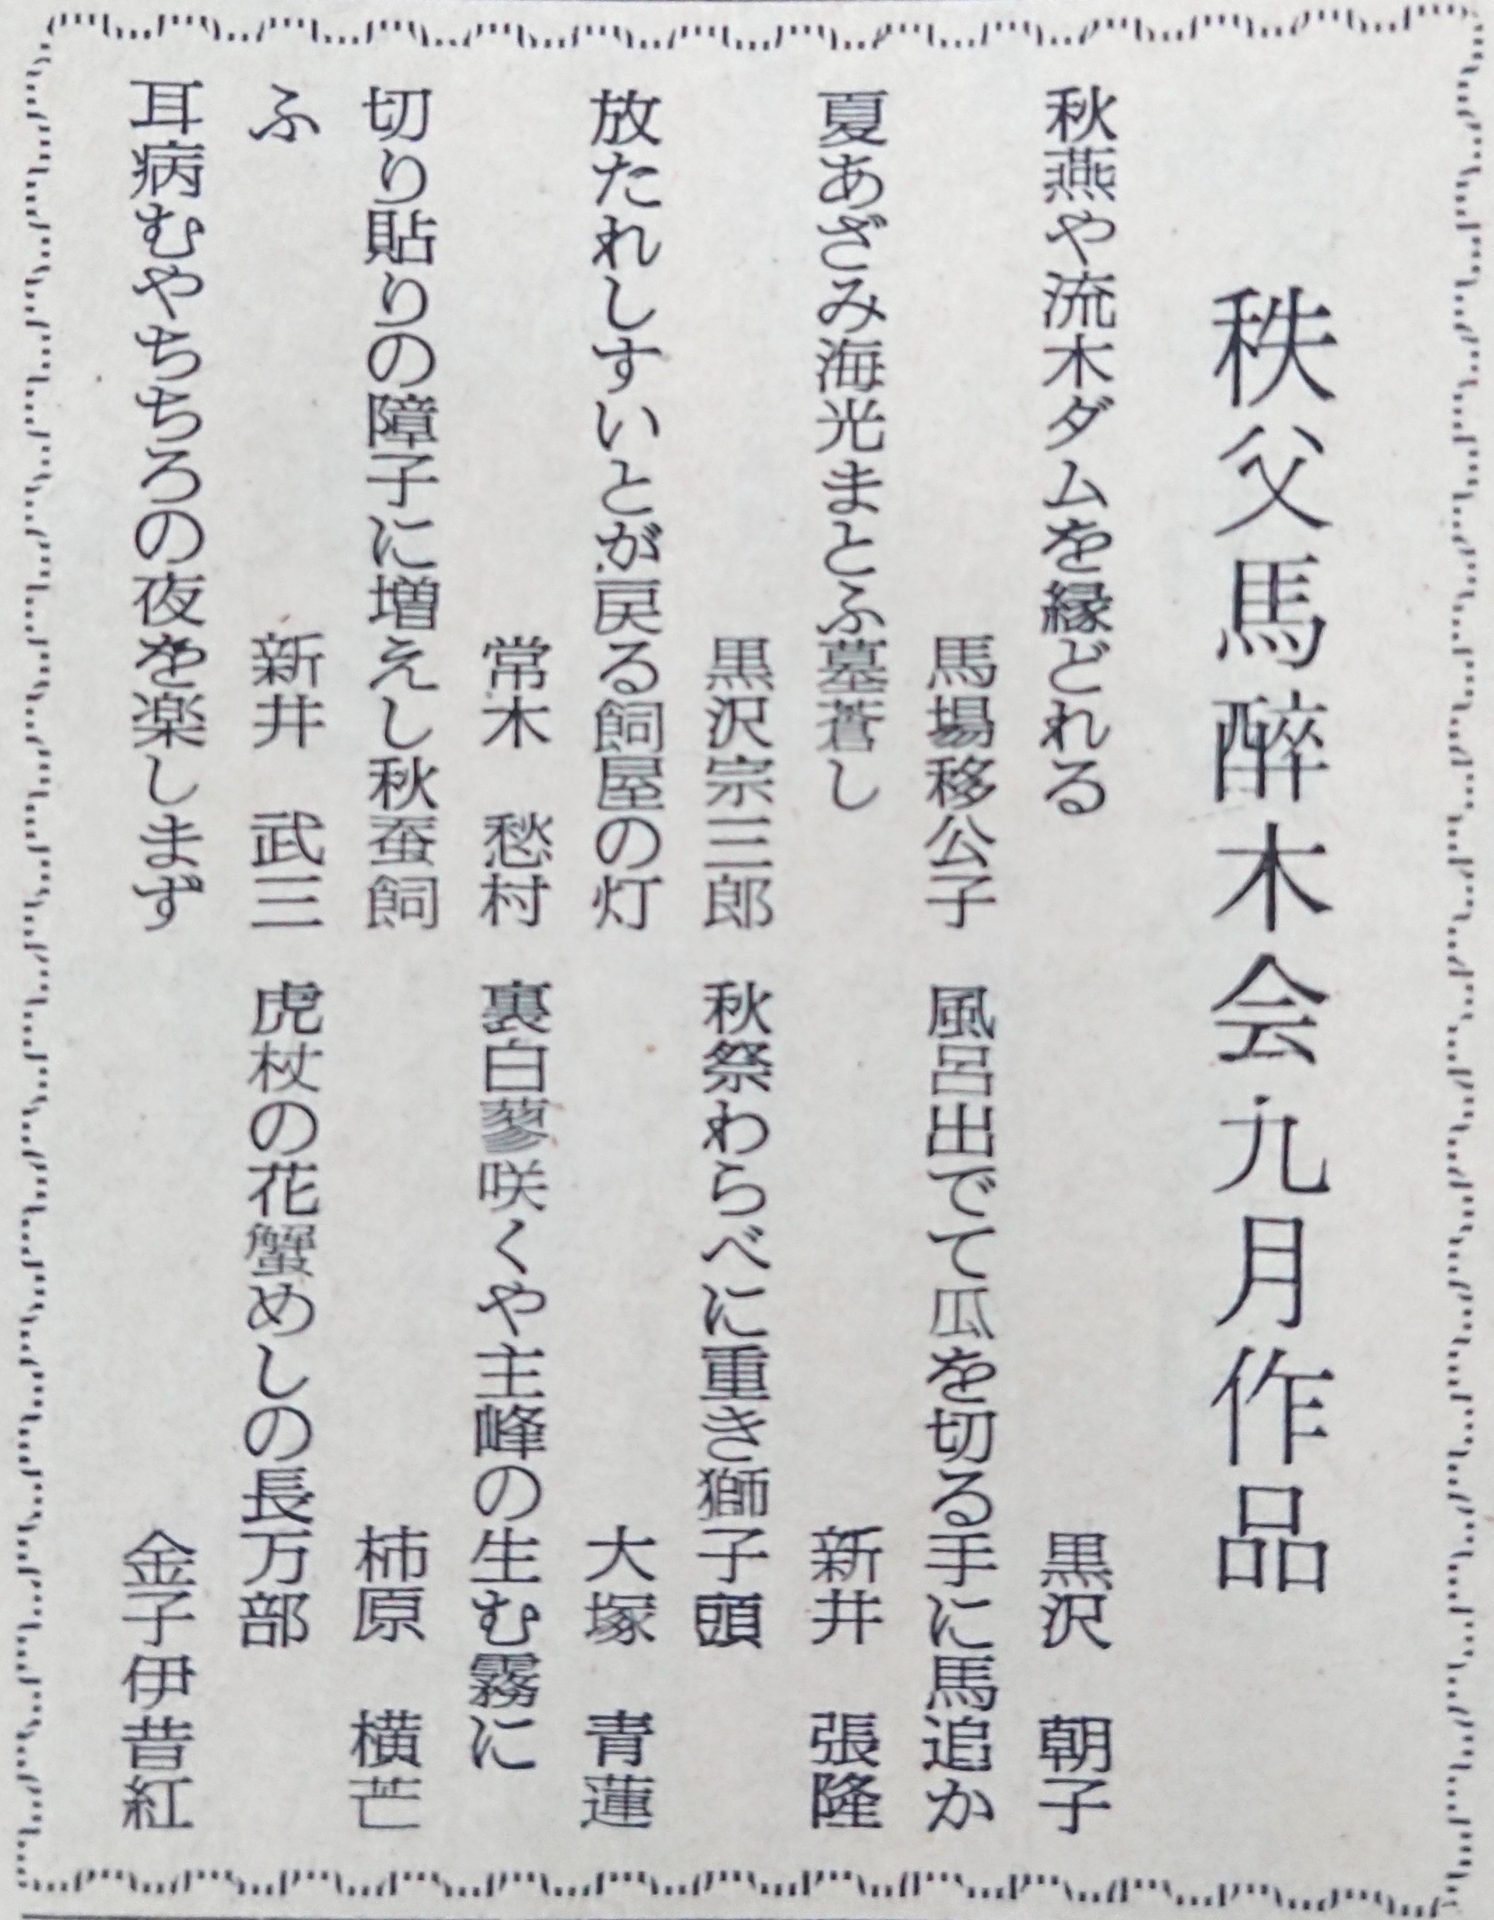 秩父馬酔木会九月作品
秋燕や流木ダムを縁どれる
馬場移公子
夏あざみ海光まとふ墓蒼し
黒沢宗三郎
放たれしすいとが戻る飼屋の灯
常木　愁村
切り貼りの障子に増えし秋蚕飼
ふ　新井　武三
耳病むやちちろの夜を楽しまず
黒沢　朝子
風呂出でて瓜を切る手に馬追か
新井　張隆
秋祭わらべに重き獅子頭
大塚　青蓮
裏白蓼咲くや主峰の生む霧に
柿原　横芒
虎杖の花蟹めしの長万部
金子伊昔紅